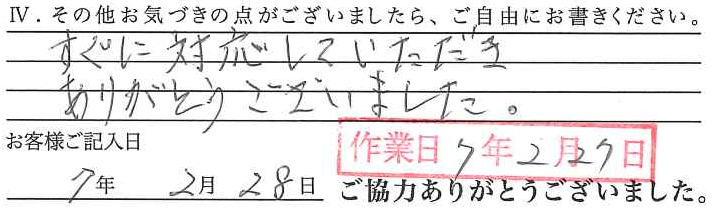 Ⅳ．その他お気づきの点がございましたら、ご自由にお書きください。
すぐに対応していただき
ありがとうございました。
お客様ご記入日
作業日 7年2月27日
7年 2月 28日 ご協力ありがとうございました。